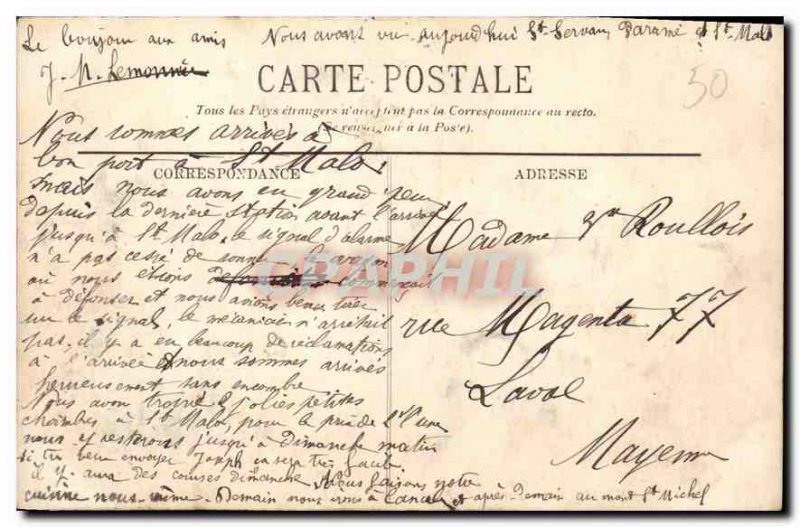 Le bonjour aux amis Nous avont vu aujourd'hui St-Servan, Paramé et St-Malo
J. M. Lemonnier
50
CARTE POSTALE
Tous les Pays étrangers n'acceptent pas la Correspondance au recto.
(Se renseigner à la Poste).
Nous sommes arrivés à
bon port à St Malo,
CORRESPONDANCE
ADRESSE
mais nous avons eu grand peur
depuis la dernière station avant l'arrivée
jusqu'à St Malo, le signal d'alarme
n'a pas cessé de sonner le wagon
où nous étions commençait
à défoncer et nous avions beau tirer
sur le signal, le mécanicien n'arrêtait
pas, il y a eu beaucoup de réclamations
à l'arrivée et nous sommes arrivés
heureusement sans encombre
Nous avon trouvé 2 jolies petites
chambres à St Malo, pour le prix de l'une
nous y resterons jusqu'à Dimanche matin
si tu veux envoyer Joseph ca sera
il y aura des courses dimanche. Nous faisons notre
cuisine nous-même. Demain nous irons à Cancale et après-demain au mont St Michel
Madame Vve Roullois
rue Magenta 77
Laval
Mayenne
CPAPHIL